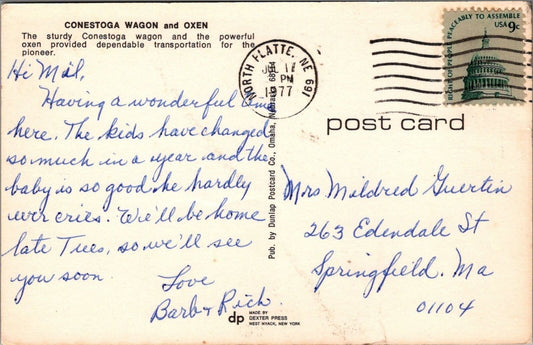 CONESTOGA WAGON and OXEN
The sturdy Conestoga wagon and the powerful
oxen provided dependable transportation for the
pioneer.
Hi Mil,
Having a wonderful time
here. The kids have changed
so much in a year and the
baby is so good he hardly
ever cries. We'll be home
late Tues, so we'll see
you soon
Love
Barb & Rich.
Pub. by Dunlap Postcard Co., Omaha, Nebraska
NORTH PLATTE, NE 691
PM
1977
RIGHT OF PEOPLE PEACEABLY TO ASSEMBLE
USA 9c
post card
Mrs Mildred Guertin
263 Edendale St
Springfield, Ma
01104
dp
MADE BY
DEXTER PRESS
WEST NYACK, NEW YORK